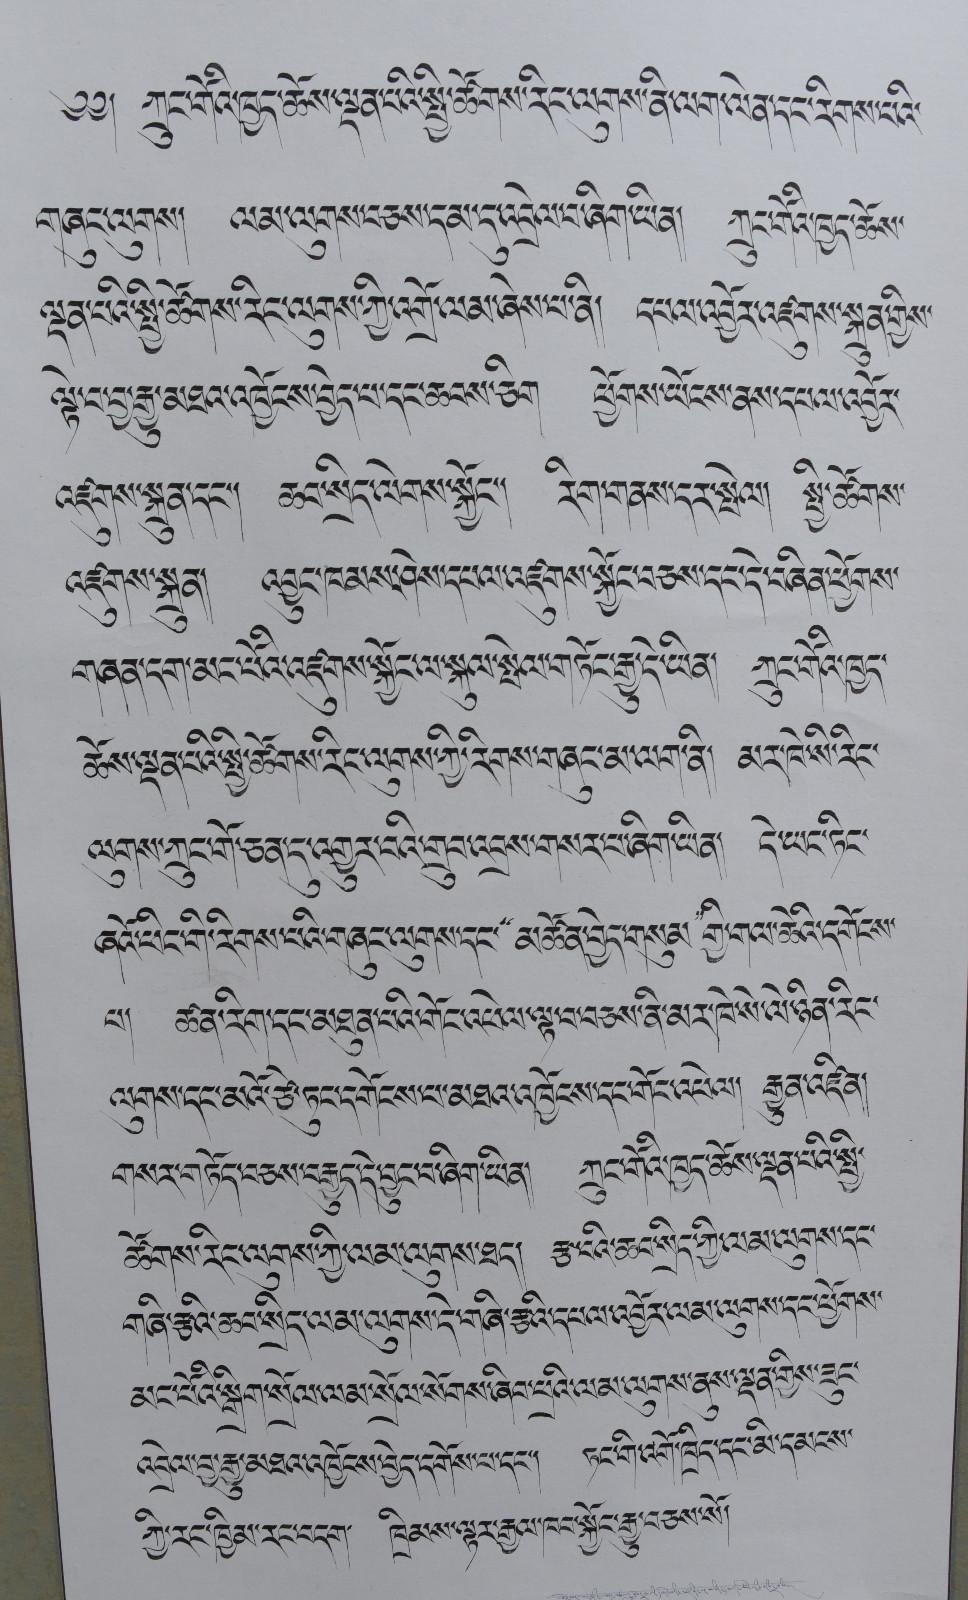 ༄༅། ཀྲུང་གོའི་ཁྱད་ཆོས་ལྡན་པའི་སྤྱི་ཚོགས་རིང་ལུགས་ནི་ལག་ལེན་དང་རིགས་པའི་
གཞུང་ལུགས། ལམ་ལུགས་བཅས་དམ་དུ་འབྲེལ་བ་ཞིག་ཡིན། ཀྲུང་གོའི་ཁྱད་ཆོས་
ལྡན་པའི་སྤྱི་ཚོགས་རིང་ལུགས་ཀྱི་འགྲོ་ལམ་ཞེས་པ་ནི། དཔལ་འབྱོར་འཛུགས་སྐྲུན་གྱིས་
ལྟེ་བ་བྱ་རྒྱུ་མཐའ་འཁྱོངས་བྱེད་པ་དང་ཆབས་ཅིག ཕྱོགས་ཡོངས་ནས་དཔལ་འབྱོར་
འཛུགས་སྐྲུན་དང་། ཆབ་སྲིད་ལེགས་སྐྱོང་། རིག་གནས་དར་སྤེལ། སྤྱི་ཚོགས་
འཛུགས་སྐྲུན། འབྱུང་ཁམས་ཤེས་དཔལ་འཛུགས་སྐྱོང་བཅས་དང་དེ་བཞིན་ཕྱོགས་
གཞན་དག་མང་པོའི་འཛུགས་སྐྱོང་ལ་སྐུལ་སྤེལ་གཏོང་རྒྱུ་དེ་ཡིན། ཀྲུང་གོའི་ཁྱད་
ཆོས་ལྡན་པའི་སྤྱི་ཚོགས་རིང་ལུགས་ཀྱི་རིགས་གཞུང་མ་ལག་ནི། མར་ཁེ་སི་རིང་
ལུགས་ཀྲུང་གོ་ཅན་དུ་འགྱུར་བའི་གྲུབ་འབྲས་གསར་པ་ཞིག་ཡིན། དེ་ཡང་ཏིང་
ཞའོ་ཕིང་གི་རིགས་པའི་གཞུང་ལུགས་དང་“མཚོན་བྱེད་གསུམ”གྱི་གལ་ཆེའི་དགོངས་
པ། ཚན་རིག་དང་མཐུན་པའི་གོང་འཕེལ་ལྟ་བ་བཅས་ནི་མར་ཁེ་སེ་ལེ་ཉིན་རིང་
ལུགས་དང་མའོ་ཙེ་ཏུང་དགོངས་པ་མཐའ་འཁྱོངས་དང་གོང་འཕེལ། རྒྱུན་འཛིན།
གསར་གཏོད་བཅས་བརྒྱུད་དེ་བྱུང་བ་ཞིག་ཡིན། ཀྲུང་གོའི་ཁྱད་ཆོས་ལྡན་པའི་སྤྱི་
ཚོགས་རིང་ལུགས་ཀྱི་ལམ་ལུགས་ཐད། རྩ་བའི་ཆབ་སྲིད་ཀྱི་ལམ་ལུགས་དང་
གཞི་རྩའི་ཆབ་སྲིད་ལམ་ལུགས་དེ་གཞི་རྩའི་དཔལ་འབྱོར་ལམ་ལུགས་དང་ཕྱོགས་
མང་པོའི་སྒྲིག་སྲོལ་ལམ་སྲོལ་སོགས་ཞིབ་ཕྲའི་ལམ་ལུགས་ནུས་ལྡན་གྱིས་ཟུང་
འབྲེལ་བྱ་རྒྱུ་མཐའ་འཁྱོངས་བྱེད་དགོས་པ་དང་། ཏང་གི་འགོ་ཁྲིད་དང་མི་དམངས་
ཀྱི་རང་ཁྱིམ་རང་བདག ཁྲིམས་ལྟར་རྒྱལ་ཁབ་སྐྱོང་རྒྱུ་བཅས་སོ།